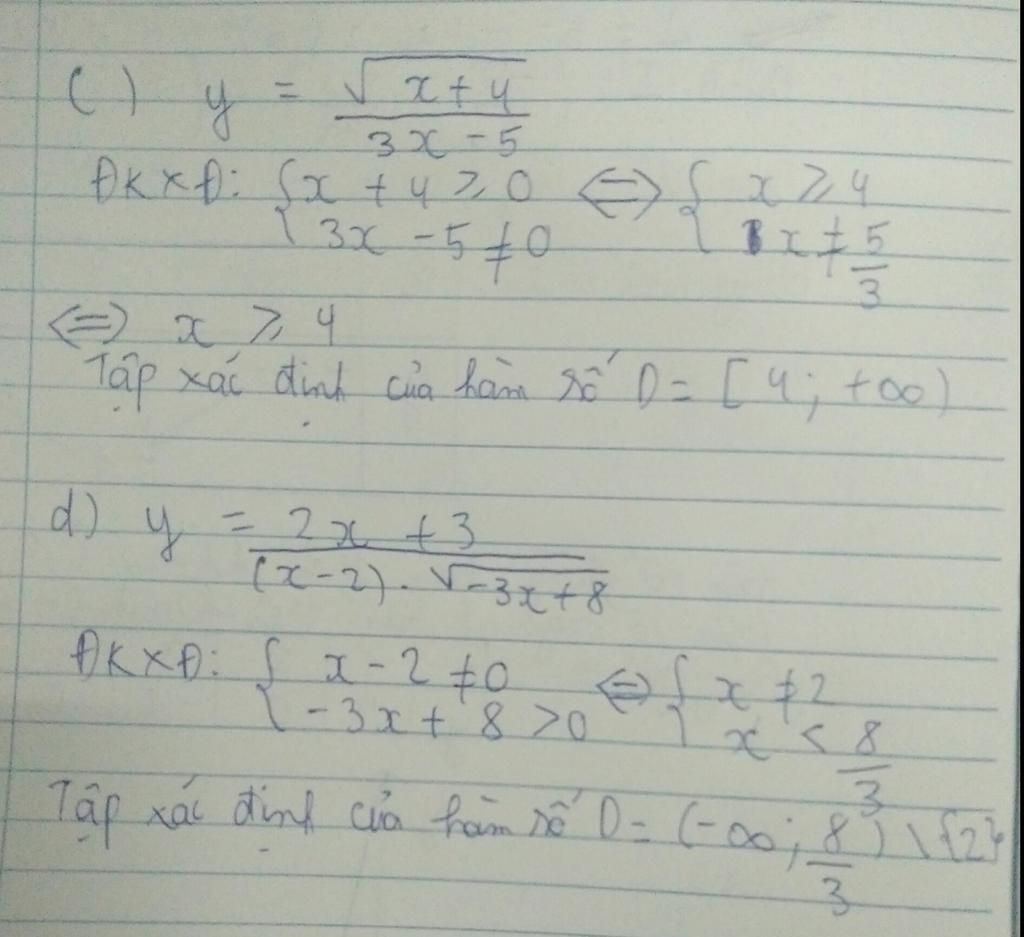 c) y = √(x + 4) / (3x - 5)
ĐKXĐ: { x + 4 ≥ 0 ; 3x - 5 ≠ 0 ⇔ { x ≥ 4 ; x ≠ 5/3
⇔ x ≥ 4
Tập xác định của hàm số D = [4; +∞)
d) y = (2x + 3) / ((x - 2) . √(-3x + 8))
ĐKXĐ: { x - 2 ≠ 0 ; -3x + 8 > 0 ⇔ { x ≠ 2 ; x < 8/3
Tập xác định của hàm số D = (-∞; 8/3) \ {2}